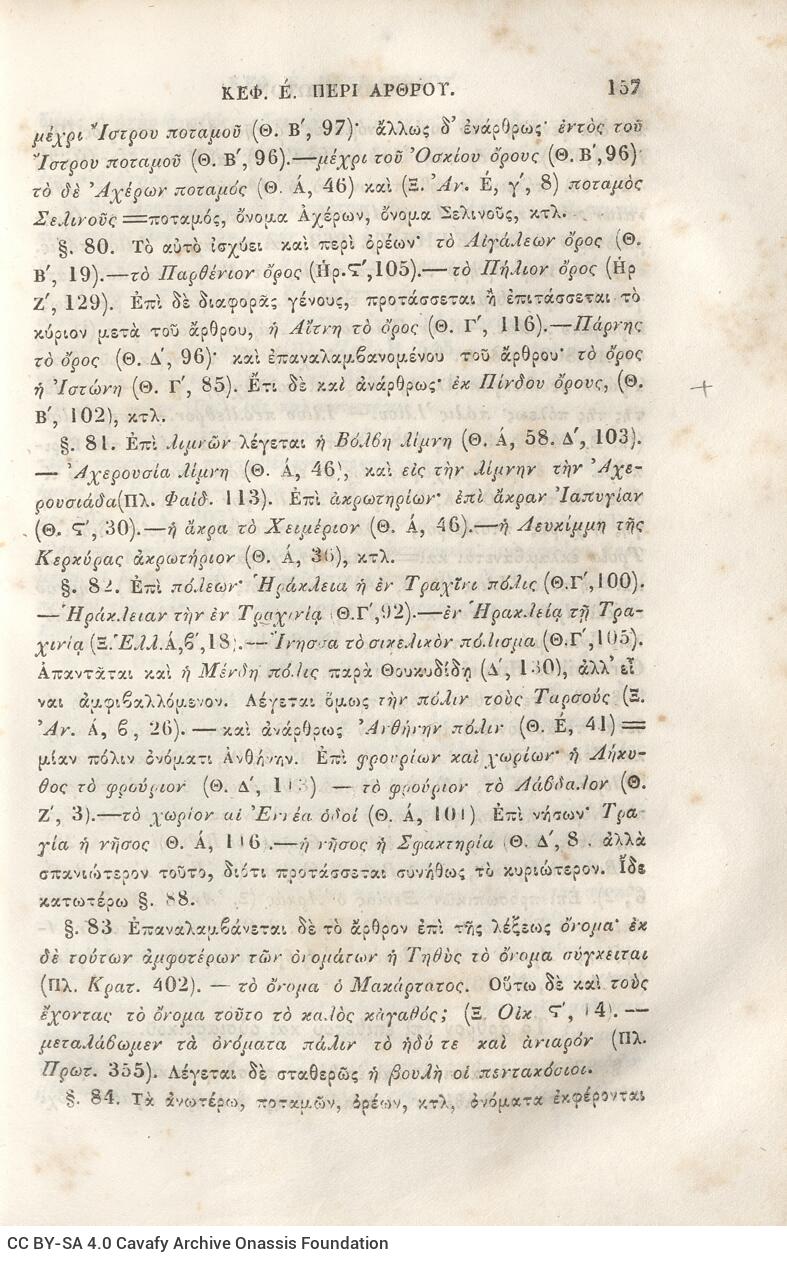 ΚΕΦ. Έ. ΠΕΡΙ ΑΡΘΡΟΥ. 157
μέχρι Ἴστρου ποταμοῦ (Θ. Β΄, 97)· ἄλλως δ' ἐνάρθρως· ἐντὸς τοῦ
Ἴστρου ποταμοῦ (Θ. Β΄, 96).—μέχρι τοῦ Ὀσκίου ὄρους (Θ. Β΄, 96)·
τὸ δὲ Ἀχέρων ποταμός (Θ. Ά, 46) καὶ (Ξ. Ἀν. Έ, γ΄, 8) ποταμὸς
Σελινοῦς=ποταμός, ὄνομα Ἀχέρων, ὄνομα Σελινοῦς, κτλ.
§. 80. Τὸ αὐτὸ ἰσχύει καὶ περὶ ὀρέων· τὸ Αἰγάλεων ὄρος (Θ.
Β΄, 19).—τὸ Παρθένιον ὄρος (Ἡρ. Ϛ΄, 105).—τὸ Πήλιον ὄρος (Ἡρ
Ζ΄, 129). Ἐπὶ δὲ διαφορᾶς γένους, προτάσσεται ἢ ἐπιτάσσεται τὸ
κύριον μετὰ τοῦ ἄρθρου, ἡ Αἴτνη τὸ ὄρος (Θ. Γ΄, 116).—Πάρνης
τὸ ὄρος (Θ. Δ΄, 96)· καὶ ἐπαναλαμβανομένου τοῦ ἄρθρου· τὸ ὄρος
ἡ Ἰστώνη (Θ. Γ΄, 85). Ἔτι δὲ καὶ ἀνάρθρως· ἐκ Πίνδου ὄρους, (Θ.
Β΄, 102), κτλ.
§. 81. Ἐπὶ λιμνῶν λέγεται ἡ Βόλβη λίμνη (Θ. Ά, 58. Δ΄, 103).
— Ἀχερουσία λίμνη (Θ. Ά, 46), καὶ εἰς τὴν λίμνην τὴν Ἀχε-
ρουσιάδα(Πλ. Φαίδ. 113). Ἐπὶ ἀκρωτηρίων· ἐπὶ ἄκραν Ἰαπυγίαν
(Θ. Ϛ΄, 30).—ἡ ἄκρα τὸ Χειμέριον (Θ. Ά, 46).—ἡ Λευκίμμη τῆς
Κερκύρας ἀκρωτήριον (Θ. Ά, 30), κτλ.
§. 82. Ἐπὶ πόλεων· Ἡράκλεια ἡ ἐν Τραχῖνι πόλις (Θ.Γ΄,100).
—Ἡράκλειαν τὴν ἐν Τραχινίᾳ (Θ.Γ΄,92).—ἐν Ἡρακλείᾳ τῇ Τρα-
χινίᾳ (Ξ.Ἑλλ.Ά,β΄,18).—Ἴνησσα τὸ σικελικὸν πόλισμα (Θ.Γ΄,105).
Ἀπαντᾶται καὶ ἡ Μένδη πόλις παρὰ Θουκυδίδῃ (Δ΄, 130), ἀλλ' εἶ
ναι ἀμφιβαλλόμενον. Λέγεται ὅμως τὴν πόλιν τοὺς Ταρσούς (Ξ.
Ἀν. Ά, β, 26). — καὶ ἀνάρθρως Ἀνθήνην πόλιν (Θ. Έ, 41)=
μίαν πόλιν ὀνόματι Ἀνθήνην. Ἐπὶ φρουρίων καὶ χωρίων· ἡ Λήκυ-
θος τὸ φρούριον (Θ. Δ΄, 113) — τὸ φρούριον τὸ Λάβδαλον (Θ.
Ζ΄, 3).—τὸ χωρίον αἱ Ἐννέα ὁδοί (Θ. Ά, 101) Ἐπὶ νήσων· Τρα-
γία ἡ νῆσος Θ. Ά, 116 .—ἡ νῆσος ἡ Σφακτηρία (Θ. Δ΄, 8 . ἀλλὰ
σπανιώτερον τοῦτο, διότι προτάσσεται συνήθως τὸ κυριώτερον. Ἴδε
κατωτέρω §. 88.
§. 83 Ἐπαναλαμβάνεται δὲ τὸ ἄρθρον ἐπὶ τῆς λέξεως ὄνομα· ἐκ
δὲ τούτων ἀμφοτέρων τῶν ὀνομάτων ἡ Τηθὺς τὸ ὄνομα σύγκειται
(Πλ. Κρατ. 402). — τὸ ὄνομα ὁ Μακάρτατος. Οὕτω δὲ καὶ τοὺς
ἔχοντας τὸ ὄνομα τοῦτο τὸ καλὸς κἀγαθός; (Ξ. Οἰκ Ϛ΄, 14). —
μεταλάβωμεν τὰ ὀνόματα πάλιν τὸ ἡδύ τε καὶ ἀνιαρόν (Πλ.
Πρωτ. 355). Λέγεται δὲ σταθερῶς ἡ βουλὴ οἱ πεντακόσιοι.
§. 84. Τὰ ἀνωτέρω, ποταμῶν, ὀρέων, κτλ, ὀνόματα ἐκφέρονται
CC BY-SA 4.0 Cavafy Archive Onassis Foundation